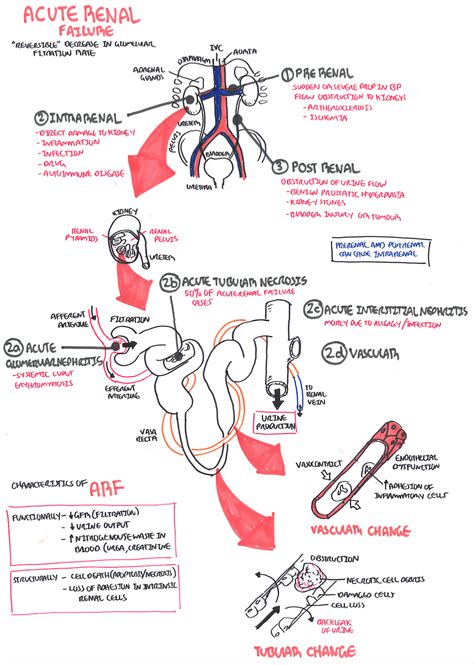 ACUTE RENAL
FAILURE
"REVERSIBLE" DECREASE IN GLOMERULAR
FILTRATION RATE
DIAPHRAGM
IVC
AORTA
ADRENAL
GLANDS
① PRERENAL
SUDDEN OR SEVERE DROP IN BP
FLOW OBSTRUCTION TO KIDNEY!
- ARTHEROSCLEROSIS
- ISCHEMIA
② INTRARENAL
- DIRECT DAMAGE TO KIDNEY
- INFLAMMATION
- INFECTION
- DRUG
- AUTOIMMUNE DISEASE
URETER
PELVIS
BLADDER
URETHRA
③ POST RENAL
OBSTRUCTION OF URINE FLOW
- BENIGN PROSTATIC HYPERPLASIA
- KIDNEY STONES
- BLADDER INJURY OR TUMOUR
PRERENAL AND POSTRENAL
CAN CAUSE INTRARENAL
KIDNEY
RENAL
PYRAMIDS
RENAL
PELVIS
URETER
2b ACUTE TUBULAR NECROSIS
50% OF ACUTE RENAL FAILURE
CASES
2c ACUTE INTERSTITIAL NEPHRITIS
MOSTLY DUE TO ALLERGY/INFECTION
2d VASCULAR
AFFERENT
ARTERIOLE
FILTRATION
2a ACUTE
GLOMERULARNEPHRITIS
- SYSTEMIC LUPUS
ERYTHEMATOSIS
EFFERENT
ARTERIOLE
VASA
RECTA
URINE
PRODUCTION
TO
RENAL
VEIN
CHARACTERISTICS OF ARF
FUNCTIONALLY - ↓GFR (FILTRATION)
- ↓URINE OUTPUT
- ↑NITROGENOUS WASTE IN
BLOOD (UREA, CREATININE
STRUCTURALLY - CELL DEATH (APOPTOSIS/NECROSIS)
- LOSS OF ADHESION IN INTRINSIC
RENAL CELLS
VASOCONTRICT
ENDOTHELIAL
DYSFUNCTION
↑ADHESION OF
INFLAMMATORY CELLS
VASCULAR CHANGE
OBSTRUCTION
NECROTIC CELL DEBRIS
DAMAGED CELLS
CELL LOSS
BACKLEAK
OF URINE
TUBULAR CHANGE